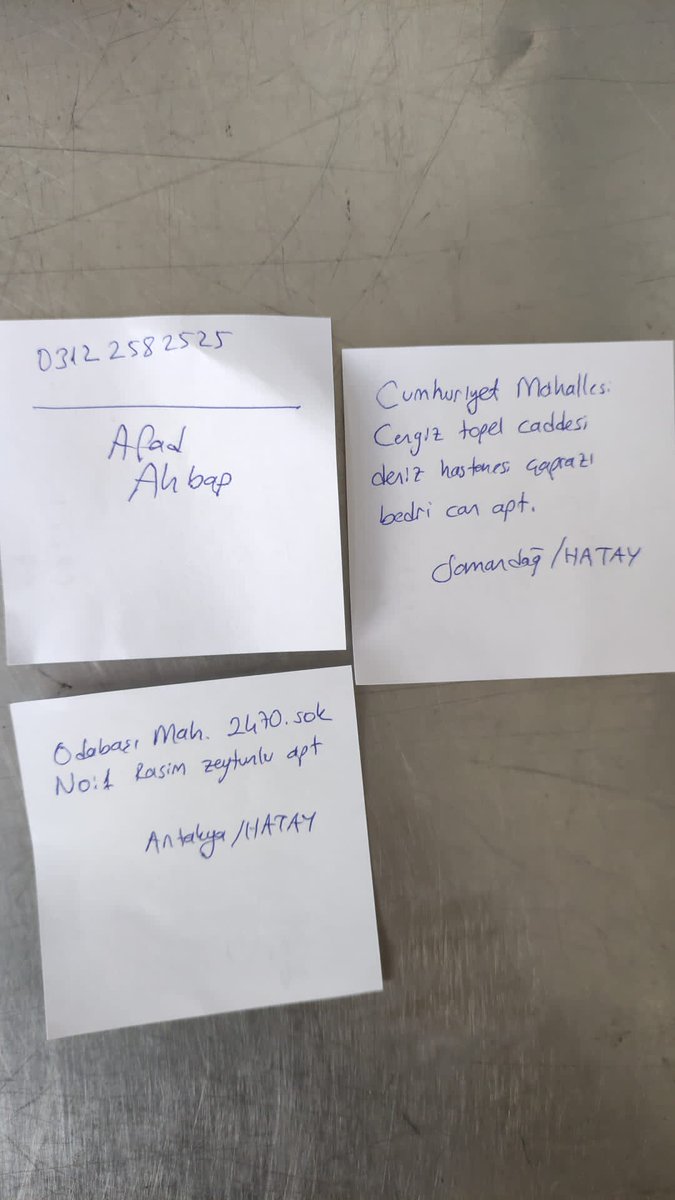 0312 258 2525
Afad
Ahbap
Cumhuriyet Mahallesi
Cengiz topel caddesi
deniz hastanesi çaprazı
bedri can apt.
Samandağ/HATAY
Odabaşı Mah. 2470.sok
No:1 Rasim zeytunlu apt
Antakya/HATAY